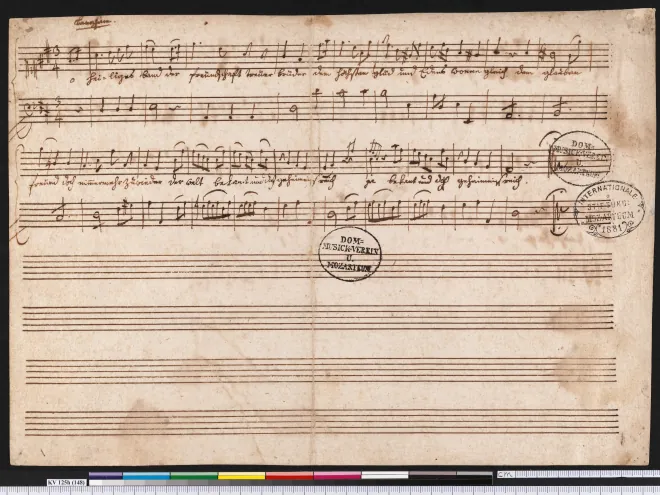 o heiliges band der freundschaft treuer brüder dem höchsten glück und Edens wonne gleich dem glauben
freund doch nimmermehr zuwieder der welt bekant und doch geheimnißreich ja bekant und doch geheimnißreich.
DOM=
MUSICK-VEREIN
U.
MOZARTEUM
INTERNATIONALE
MOZARTEUM
1881
DOM=
MUSICK-VEREIN
U.
MOZARTEUM
cm
KV 125h (148)